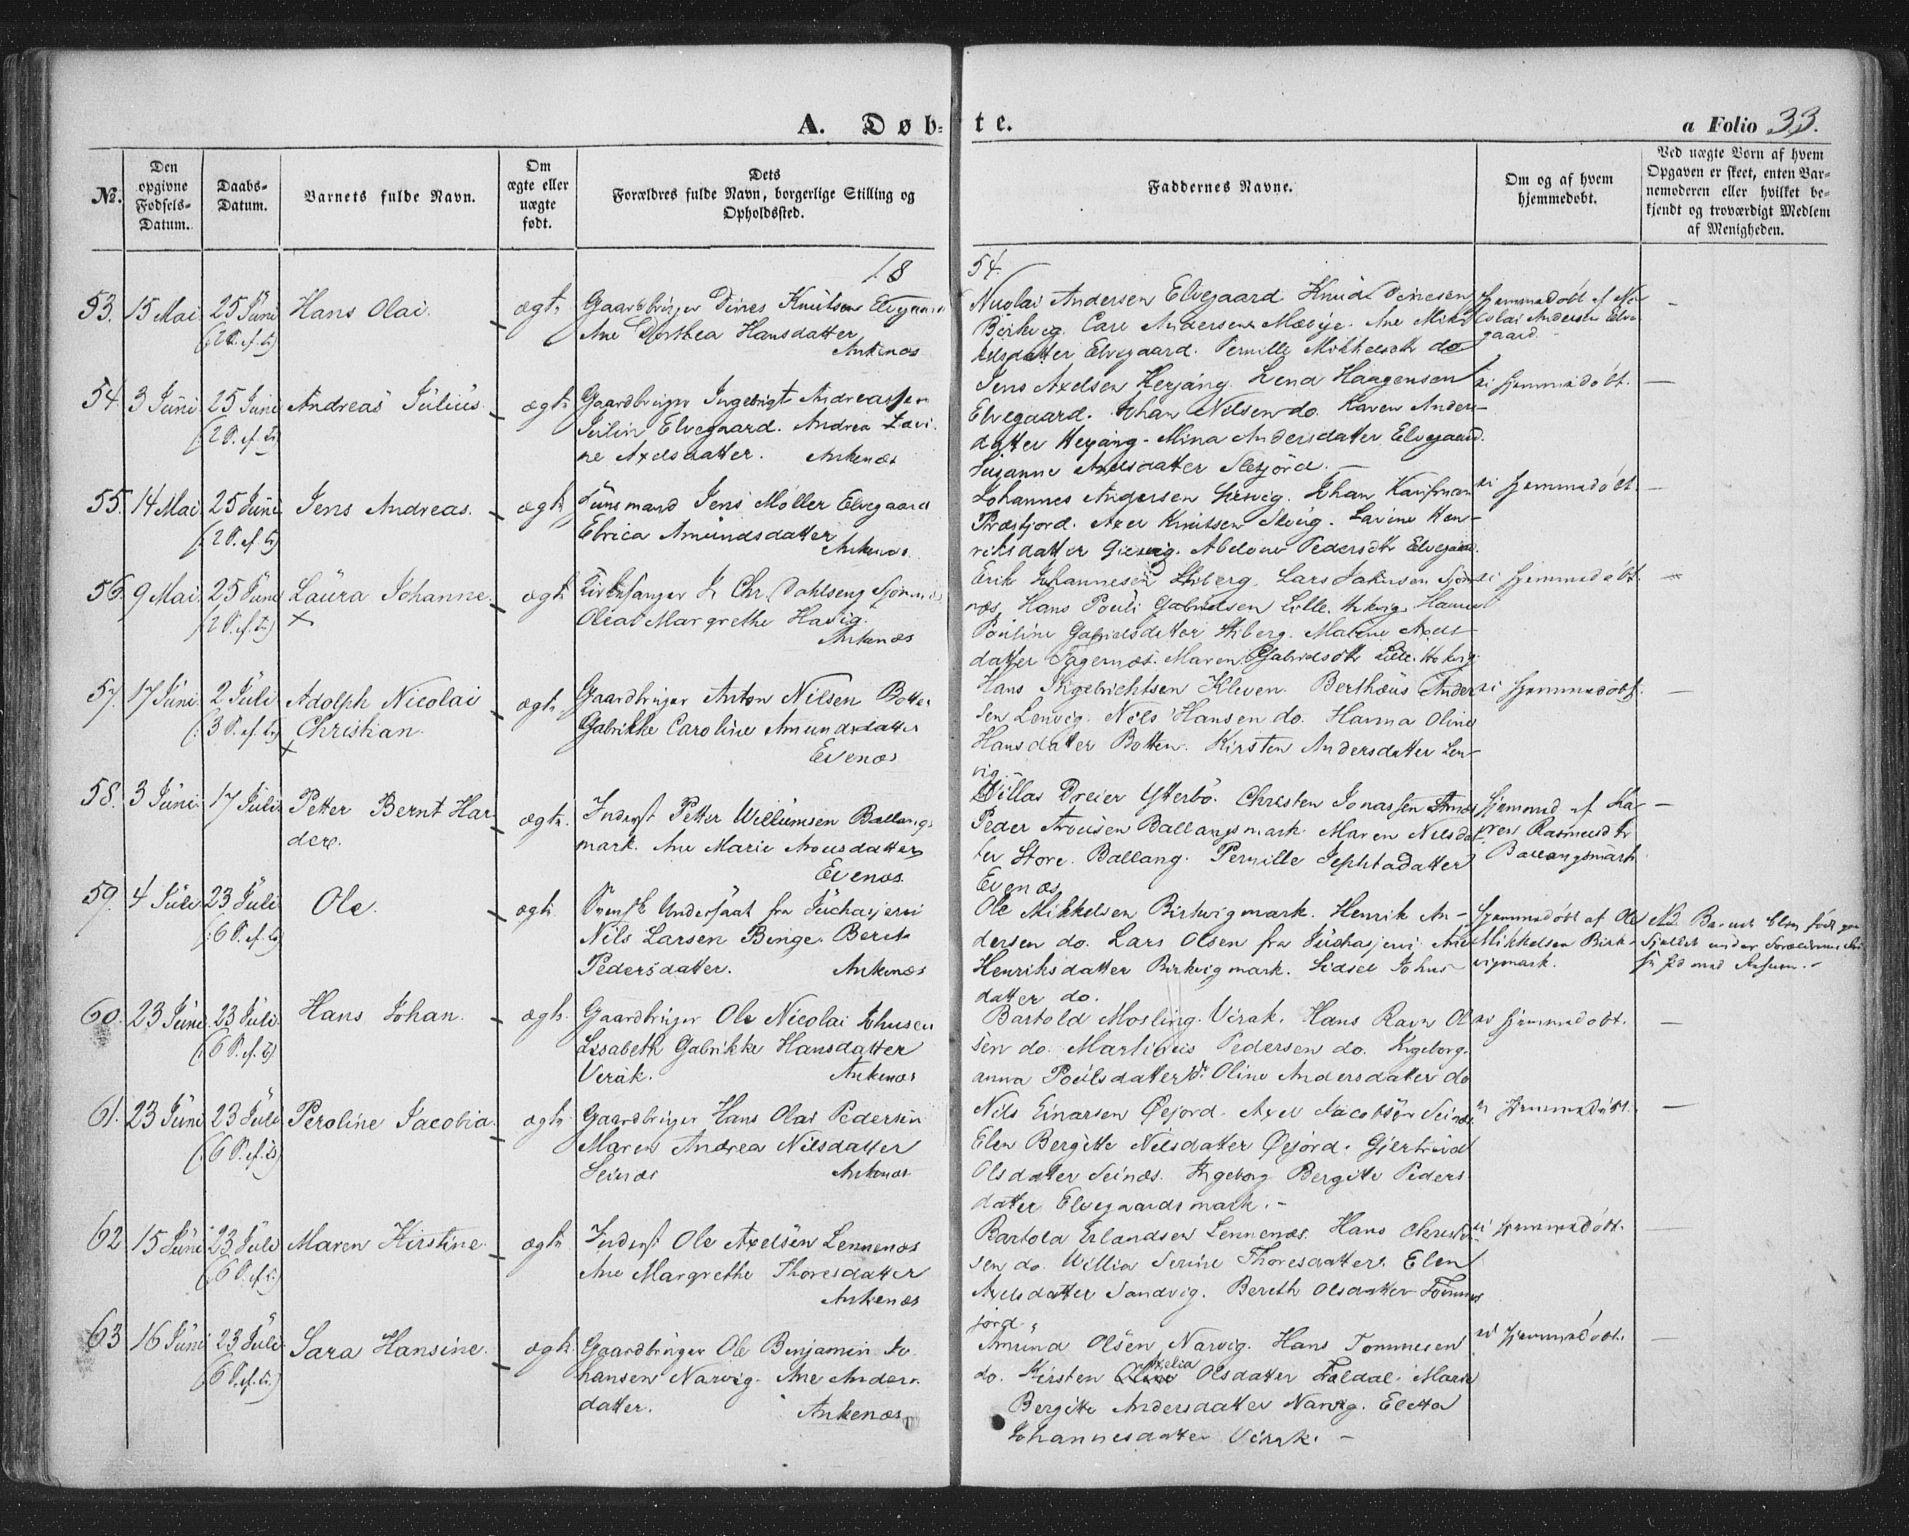 A. Døb-te.
a Folio 33.
No.
Den opgivne Fødsels-Datum.
Daabs-Datum.
Barnets fulde Navn.
Om ægte eller uægte født.
Dets Forældres fulde Navn, borgerlige Stilling og Opholdssted.
Faddernes Navne.
Om og af hvem hjemmedøbt.
Ved uægte Børn af hvem Opgaven er skeet, enten Barnemoderen eller hvilket bekjendt og troværdigt Medlem af Menigheden.
18
54.
53. 15 Mai 25 Juni Hans Olai. ægte Gaardbruger Dines Knutsen Elvegaard
(2 S. ef. Tr.) Ane Dorthea Hansdatter
Ankenæs
Nicolai Andersen Elvegaard Knud Dinesen
Berkvig. Carl Andersen Mæbye. Ane Mik-
kelsdatter Elvegaard. Pernille Mikkelsdtr do
Hjemmedøbt af Ni-
colai Andersen Elve-
gaard. —
54. 3 Juni 25 Juni Andreas Julius. ægte Gaardbruger Ingebrigt Andreassen
(2 S. ef. Tr.) Elvegaard. Andrea Lovi-
ne Axelsdatter. Ankenæs
Jens Axelsen Herjang. Lena Haagensen
Elvegaard. Johan Nilsen do. Karen Anders-
datter Herjang. Mina Andersdatter Elvegaard.
Susanne Axelsdatter
ei hjemmedøbt. —
55. 14 Mai 25 Juni Jens Andreas. ægte Huusmand Jens Møller Elvegaard
(2 S. ef. Tr.) Elrica Amundsdatter
Ankenæs
Johannes Andersen Johan Kaufman
Axel Knutsen Lavine Hen-
riksdatter Abelone Pedersdtr Elvegaard.
ei hjemmedøbt —
56. 9 Mai 25 Juni Laura Johanne. ægte Kirkesanger J. Chr. Dahlseng
(2 S. ef. Tr.) Oleal Margrethe Havig.
Ankenæs
Erik Johannesen Lars Jakobsen
næs. Hans Pouli Gabrielsen Lille
Pouline Gabrielsdatter Maline Axels-
datter Fagernæs. Maren Gabrielsdtr Lille
ei hjemmedøbt. —
57. 17 Juni 2 Juli Adolph Nicolai ægte Gaardbruger Anton Nilsen Botten
(3 S. ef. Tr.) Christian. Gabrikke Caroline Amundsdatter
Evenæs
Hans Ingebrichtsen Kleven. Berthæus Ander-
sen Lenvig. Nils Hansen do. Hanna Oline
Hansdatter Botten. Kirsten Andersdatter Len-
vig.
ei hjemmedøbt. —
58. 3 Juni 17 Juli Petter Bernt Har- ægte Inderst Petter Willumsen Ballangs-
der. mark. Ane Marie Arvesdatter
Evenæs
Dillas Dreier Ytterbø. Christen Jonassen
Peder Ballangsmark. Maren Nilsdat-
ter Store Ballang. Pernille Jephtadatter
Evenæs
Hjemmed af Ka-
ren Rasmusdtr
Ballangsmark —
59. 4 Juli 23 Juli Ole. ægte Svensk Undersaat fra Juchasjervi
(6 S. ef. Tr.) Nils Larsen Binge. Beret
Pedersdatter. Ankenæs
Ole Mikkelsen Birkvigmark. Henrik An-
dersen do. Lars Olsen fra Juchasjervi. Ane
Henriksdatter Birkvigmark. Sidsel Johns-
datter do.
Hjemmedøbt af Ole
Mikkelsen Birk-
vigmark.
NB Barnet blev født paa
Fjeldet under Forældrenes
60. 23 Juni 23 Juli Hans Johan. ægte Gaardbruger Ole Nicolai Johnsen
(6 S. ef. Tr.) Lisabeth Gabrikke Hansdatter
Virak. Ankenæs
Bartold Mosling Virak. Hans Ravn Ol-
sen do. Martinus Pedersen do. Ingeborg-
anna Poulsdatter do. Oline Andersdatter do
ei hjemmedøbt. —
61. 23 Juni 23 Juli Peroline Jacobia. ægte Gaardbruger Hans Olai Pedersen
(6 S. ef. Tr.) Maren Andrea Nilsdatter
Seinæs Ankenæs
Nils Einarsen Øejord. Axel Jacobsen Seinæs
Elen Bergitte Nilsdatter Øejord. Gjertrud
Olsdatter Seinæs. Ingeborg Bergitte Peders-
datter Elvegaardsmark. —
ei hjemmedøbt. —
62 15 Juni 23 Juli Maren Kirstine. ægte Inderst Ole Axelsen Lennenæs
(6 S. ef. Tr.) Ane Margrethe Thoresdatter
Ankenæs
Bartold Erlandsen Lennenæs. Hans
sen do. Willia Serine Thoresdatter. Elen
Axelsdatter Sandvig. Bereth Olsdatter
fjord.
ei hjemmedøbt. —
63 16 Juni 23 Juli Sara Hansine. ægte Gaardbruger Ole Benjamin Jo-
(6 S. ef. Tr.) hansen Narvig. Ane Anders-
datter. Ankenæs
Amund Olsen Narvig. Hans Tommesen
do. Kirsten Olsdatter Taldal. Marie
Bergitte Andersdatter Narvig. Eletta
Johannesdatter Virak. —
ei hjemmedøbt. —